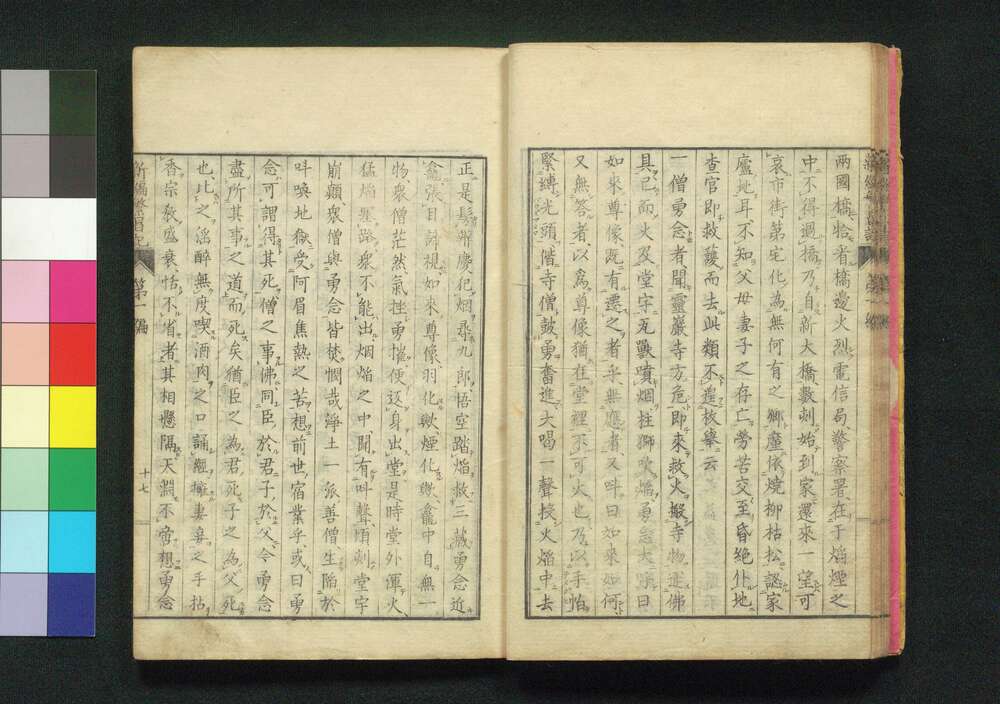 兩國橋恰看橋邊火烈電信局警察署在于焔煙之
中不得過橋乃自新大橋數刻始到家還來一望可
哀市街第宅化為無何有之郷塵依燒柳枯松認家
廬地耳不知父母妻子之存亡勞苦交至昏絶仆地
查官即救護而去此類不遑枚擧云
一僧勇念者聞靈巖寺方危即來救火搬寺物運佛
具已而火及堂宇瓦獸噴烟柱獅吹焔勇念大嘆曰
如來尊像既有遷之者乎無應者又呌曰如來如何
又無答者以為尊像猶在堂裡不可火也乃以手怕
緊縛光頭偕寺僧鼓勇奮進大喝一聲投火焔中去
正是髮弁慶犯烟尋九郎悟空踏焔救三藏勇念近
龕張目諦視如來尊像羽化歟煙化歟龕中自無一
物衆僧茫然氣挫勇摧便返身出堂是時堂外渾火
猛焔塞路衆不能出烟焔之中聞有呌聲頃刻堂宇
崩顛衆僧與勇念皆焚憫哉淨土一派善僧生陥於
呌喚地獄受阿眉焦熱之苦想前世宿業乎或曰勇
念可謂得其死僧之事佛同臣於君子於父今勇念
盡所其事之道而死矣猶臣之為君死子之為父死
也比之淫醉無度喫酒肉之口誦觀擁妻妾之手拈
香宗教盛衰恬不省者其相懸隔天淵不啻想勇念
新編繁昌記
第一編
十七